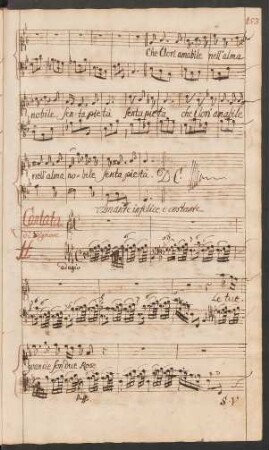 che Clori amabile nell'alma
nobile senta pietà senta pietà che Clori amabile
nell'alma nobile senta pietà. D.C.
Amante infelice e costante
Cantata
adagio
Le tue
guancie son due Rose
S. V